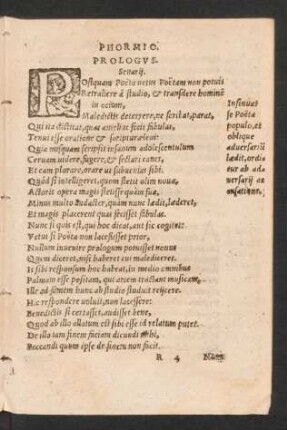 PHORMIO.
PROLOGVS.
Senarij.
POstquam Poëta uetus Poëtam non potuit
Retrahere à studio, & transdere hominē
in ocium,
Maledictis deterrere, ne scribat, parat,
Qui ita dictitat, quas antehac fecit fabulas,
Tenui esse oratione & scriptura leui:
Quia nusquam scripsit insanum adolescentulum
Ceruam uidere fugere, & sectari canes,
Et eam plorare, orare ut subueniat sibi.
Quòd si intelligeret, quum stetit olim noua,
Actoris opera magis stetisse quàm sua,
Minus multo audacter, quàm nunc lædit, læderet,
Et magis placerent quas fecisset fabulas.
Nunc si quis est, qui hoc dicat, aut sic cogitet:
Vetus si Poëta non lacessisset prior,
Nullum inuenire prologum potuisset nouus
Quem diceret, nisi haberet cui malediceret.
Is sibi responsum hoc habeat, in medio omnibus
Palmam esse positam, qui artem tractant musicam.
Ille ad famem hunc ab studio studuit reijcere.
Hic respondere uoluit, non lacessere:
Benedictis si certasset, audisset bene,
Quod ab illo allatum est sibi esse id relatum putet.
De illo iam finem faciam dicundi mihi,
Peccandi quum ipse de se finem non fecit.
R 4 Nunc
Insinuat
se Poëta
populo, et
oblique
aduersariū
lædit, ordi
tur ab ad-
uersarij ac
cusatione.